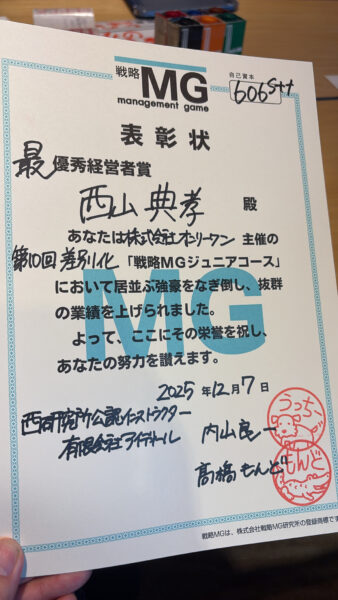 戦略MG
management game
自己資本
606
表彰状
最優秀経営者賞
西山 典孝 殿
あなたは株式会社オンリーワン 主催の
第10回 差別化 「戦略MGジュニアコース」
において居並ぶ強豪をなぎ倒し、抜群
の業績を上げられました。
よって、ここにその栄誉を祝し、
あなたの努力を讃えます。
MG
2025 年 12月 7日
西研究所公認インストラクター
有限会社
内山良一
うっち〜
髙橋もんど
もんど
戦略MGは、株式会社戦略MG研究所の登録商標です